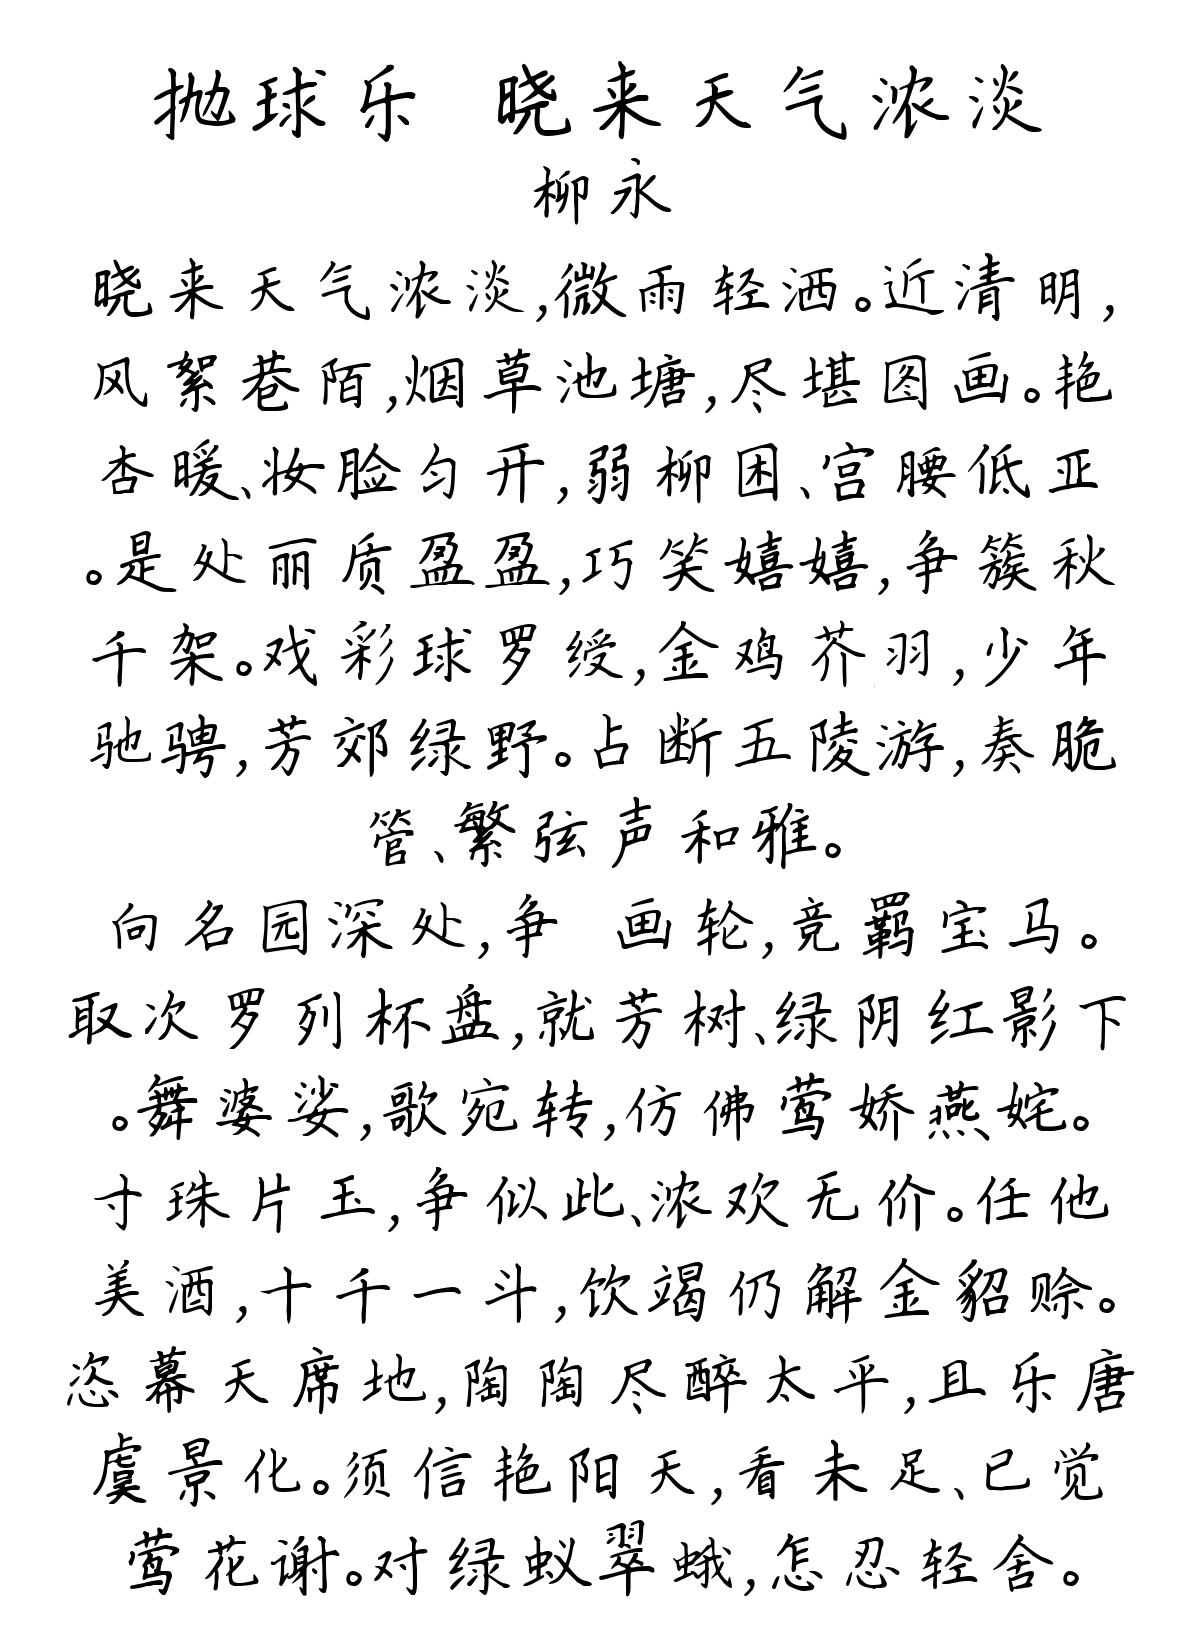 抛球乐 晓来天气浓淡
柳永
晓来天气浓淡,微雨轻洒。近清明,
风絮巷陌,烟草池塘,尽堪图画。艳
杏暖、妆脸匀开,弱柳困、宫腰低亚
。是处丽质盈盈,巧笑嬉嬉,争簇秋
千架。戏彩球罗绶,金鸡芥羽,少年
驰骋,芳郊绿野。占断五陵游,奏脆
管、繁弦声和雅。
向名园深处,争 画轮,竞羁宝马。
取次罗列杯盘,就芳树、绿阴红影下
。舞婆娑,歌宛转,仿佛莺娇燕姹。
寸珠片玉,争似此、浓欢无价。任他
美酒,十千一斗,饮竭仍解金貂赊。
恣幕天席地,陶陶尽醉太平,且乐唐
虞景化。须信艳阳天,看未足、已觉
莺花谢。对绿蚁翠蛾,怎忍轻舍。